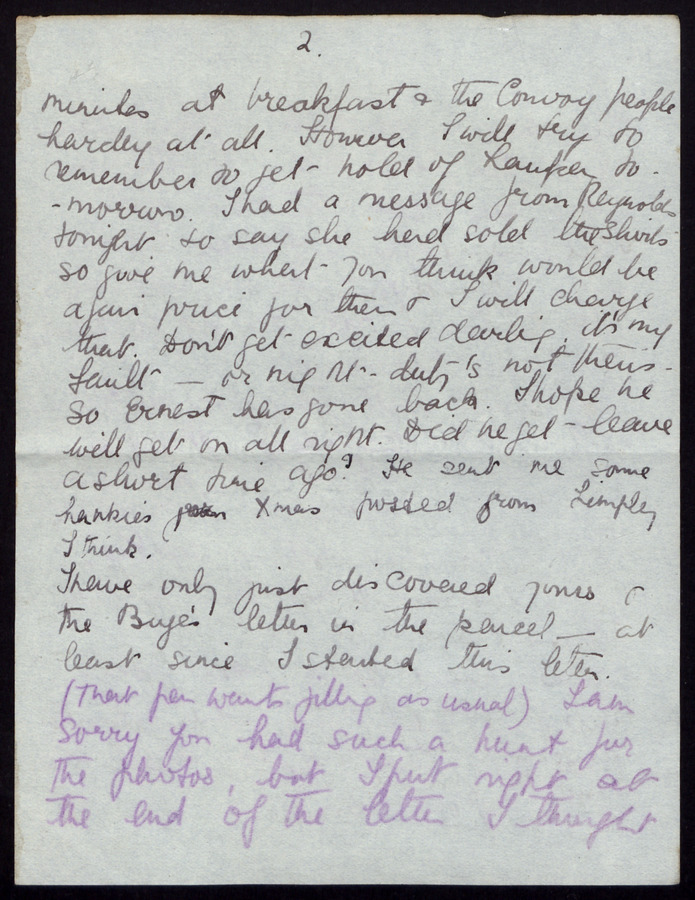 2.
minutes at breakfast & the Convoy people
hardly at all. However I will try to
remember to get hold of to-
-morrow. I had a message from Reynolds
tonight to say she had sold the
so give me what you think would be
a fair price for them & I will charge
that. Don't get excited darling, it's my
fault — or night-duty's not theirs.
So Ernest has gone back. I hope he
will get on all right. Did he get leave
a short time ago? He sent me some
hankies Xmas posted from Limpley
I think.
I have only just discovered yours &
the letter in the parcel — at
least since I started this letter.
(That pen wants filling as usual) I am
sorry you had such a hunt for
the photos, but I put right at
the end of the letter I thought